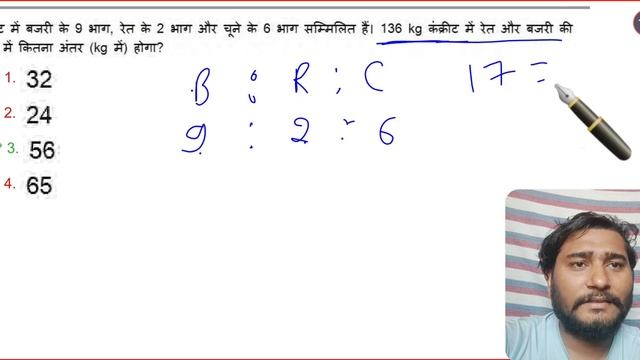 ट में बजरी के 9 भाग, रेत के 2 भाग और चूने के 6 भाग सम्मिलित हैं। 136 kg कंक्रीट में रेत और बजरी की
में कितना अंतर (kg में) होगा?
1. 32
2. 24
3. 56
4. 65
B : R : C 17 =
9 : 2 : 6